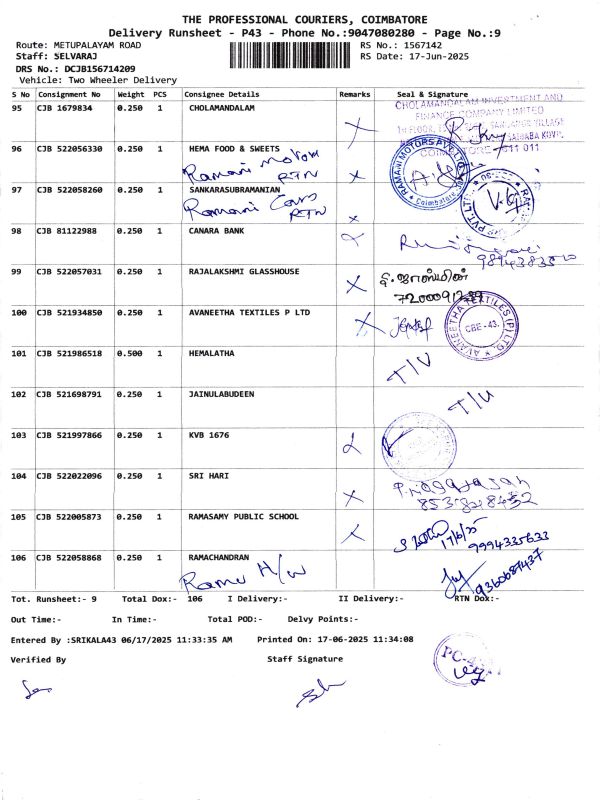 THE PROFESSIONAL COURIERS, COIMBATORE
Delivery Runsheet - P43 - Phone No.:9047080280 - Page No.:9
Route: METUPALAYAM ROAD RS No.: 1567142
Staff: SELVARAJ RS Date: 17-Jun-2025
DRS No.: DCJB156714209
Vehicle: Two Wheeler Delivery
S No Consignment No Weight PCS Consignee Details Remarks Seal & Signature
95 CJB 1679834 0.250 1 CHOLAMANDALAM
CHOLAMANDALAM INVESTMENT AND
FINANCE COMPANY LIMITED
96 CJB 522056330 0.250 1 HEMA FOOD & SWEETS
Ramani Motors
RTN
RAMANI MOTORS PVT LTD
Coimbatore
97 CJB 522058260 0.250 1 SANKARASUBRAMANIAN
Ramani Cars
RTN
98 CJB 81122988 0.250 1 CANARA BANK
99 CJB 522057031 0.250 1 RAJALAKSHMI GLASSHOUSE
100 CJB 521934850 0.250 1 AVANEETHA TEXTILES P LTD
AVANEETHA TEXTILES (P) LTD.
CBE -43.
101 CJB 521986518 0.500 1 HEMALATHA
T/U
102 CJB 521698791 0.250 1 JAINULABUDEEN
T/U
103 CJB 521997866 0.250 1 KVB 1676
104 CJB 522022096 0.250 1 SRI HARI
105 CJB 522005873 0.250 1 RAMASAMY PUBLIC SCHOOL
17/6/25
9994335633
106 CJB 522058868 0.250 1 RAMACHANDRAN
Ramu H/W
9360687437
Tot. Runsheet:- 9 Total Dox:- 106 I Delivery:- II Delivery:- RTN Dox:-
Out Time:- In Time:- Total POD:- Delvy Points:-
Entered By :SRIKALA43 06/17/2025 11:33:35 AM Printed On: 17-06-2025 11:34:08
Verified By Staff Signature